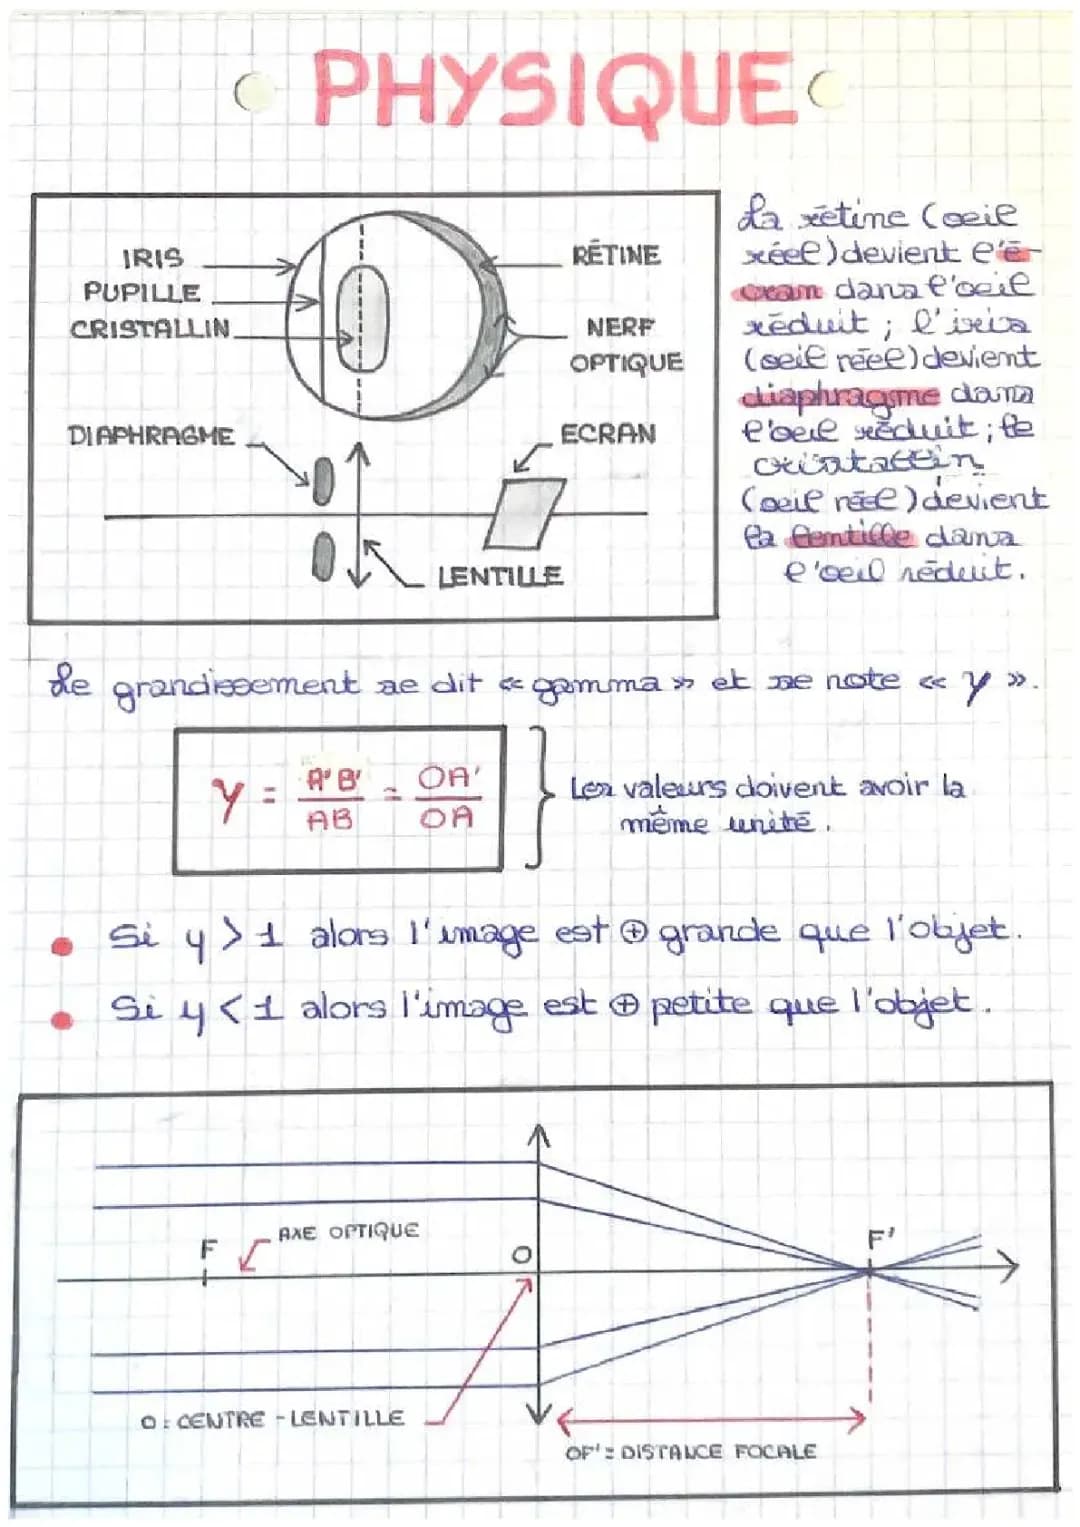 PHYSIQUE
IRIS
PUPILLE
CRISTALLIN
RÉTINE
NERF
OPTIQUE
DIAPHRAGME
ECRAN
LENTILLE
La rétine (oeil
réel) devient l'é-
cran dans l'oeil
réduit ; l'iris
(oeil réel) devient
diaphragme dans
l'oeil réduit ; le
cristallin
(oeil réel) devient
la lentille dans
l'oeil réduit.
Le grandissement se dit « gamma » et se note « γ ».
γ = A'B' / AB = OA' / OA
Les valeurs doivent avoir la
même unité.
Si γ > 1 alors l'image est ⊕ grande que l'objet.
Si γ < 1 alors l'image est ⊕ petite que l'objet.
AXE OPTIQUE
F
O
F'
O : CENTRE - LENTILLE
OF' = DISTANCE FOCALE